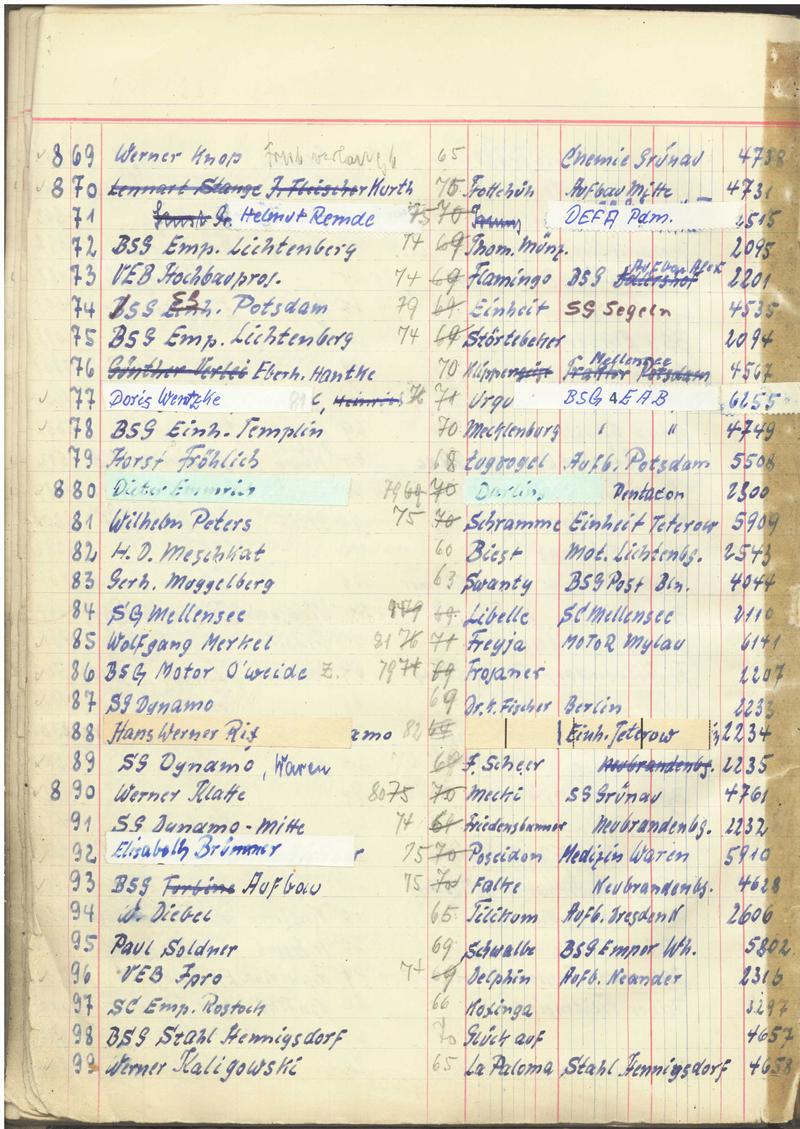 8 69 Werner Knop 65 Chemie Grünau 4738
8 70 Lennart Stange F. Fleischer Kurth 75 Aufbau Mitte 4731
71 Helmut Remde 75 70 DEFA Pdm. 4515
72 BSG Emp. Lichtenberg 74 69 Thom. Münz. 2095
73 VEB Hochbaupros. 74 69 Flamingo BSG 2201
74 BSG Potsdam 79 69 Einheit SG Segeln 4535
75 BSG Emp. Lichtenberg 74 69 Störtebeker 2094
76 Günther Verlei Eberh. Hantke 70 Mellensee Traktor Potsdam 4567
77 Doris Wentzke 76 71 Urgu BSG EAB 6255
78 BSG Einh. Templin 70 Mecklenburg " " 4749
79 Horst Fröhlich 68 Zugvogel Aufb. Potsdam 5508
8 80 Dieter Emmrich 79 69 70 Darling Pentacon 2300
81 Wilhelm Peters 75 70 Schramme Einheit Teterow 5909
82 H. D. Meschkat 60 Biest Mot. Lichtenbg. 2543
83 Gerh. Muggelberg 63 Swanty BSG Post Bln. 4044
84 SG Mellensee 79 69 Libelle SC Mellensee 2110
85 Wolfgang Merkel 81 76 71 Freyja MOTOR Mylau 6141
86 BSG Motor O'weide Z. 79 74 69 Trojaner 2207
87 SG Dynamo 69 Dr. H. Fischer Berlin 2233
88 Hans Werner Rix amo 82 Einh. Teterow 2234
89 SG Dynamo, Waren 68 F. Scheer Neubrandenbg. 2235
8 90 Werner Klatte 80 75 70 Mecki SG Grünau 4761
91 SG Dynamo-Mitte 74 Friedensbanner Neubrandenbg. 2232
92 Elisabeth Brümmer 75 70 Poseidon Medizin Waren 5910
93 BSG Turbine Aufbau 75 70 Falke Neubrandenbg. 4628
94 Diebel 65 Tilikum Aufb. Dresden N 2606
95 Paul Soldner 69 Schwalbe BSG Empor Wh. 5802
96 VEB Ipro 74 69 Delphin Aufb. Neander 2316
97 SC Emp. Rostock 66 Koxinga 3297
98 BSG Stahl Hennigsdorf 70 Glück auf 4657
99 Werner Kaligowski 65 La Paloma Stahl Hennigsdorf 4658